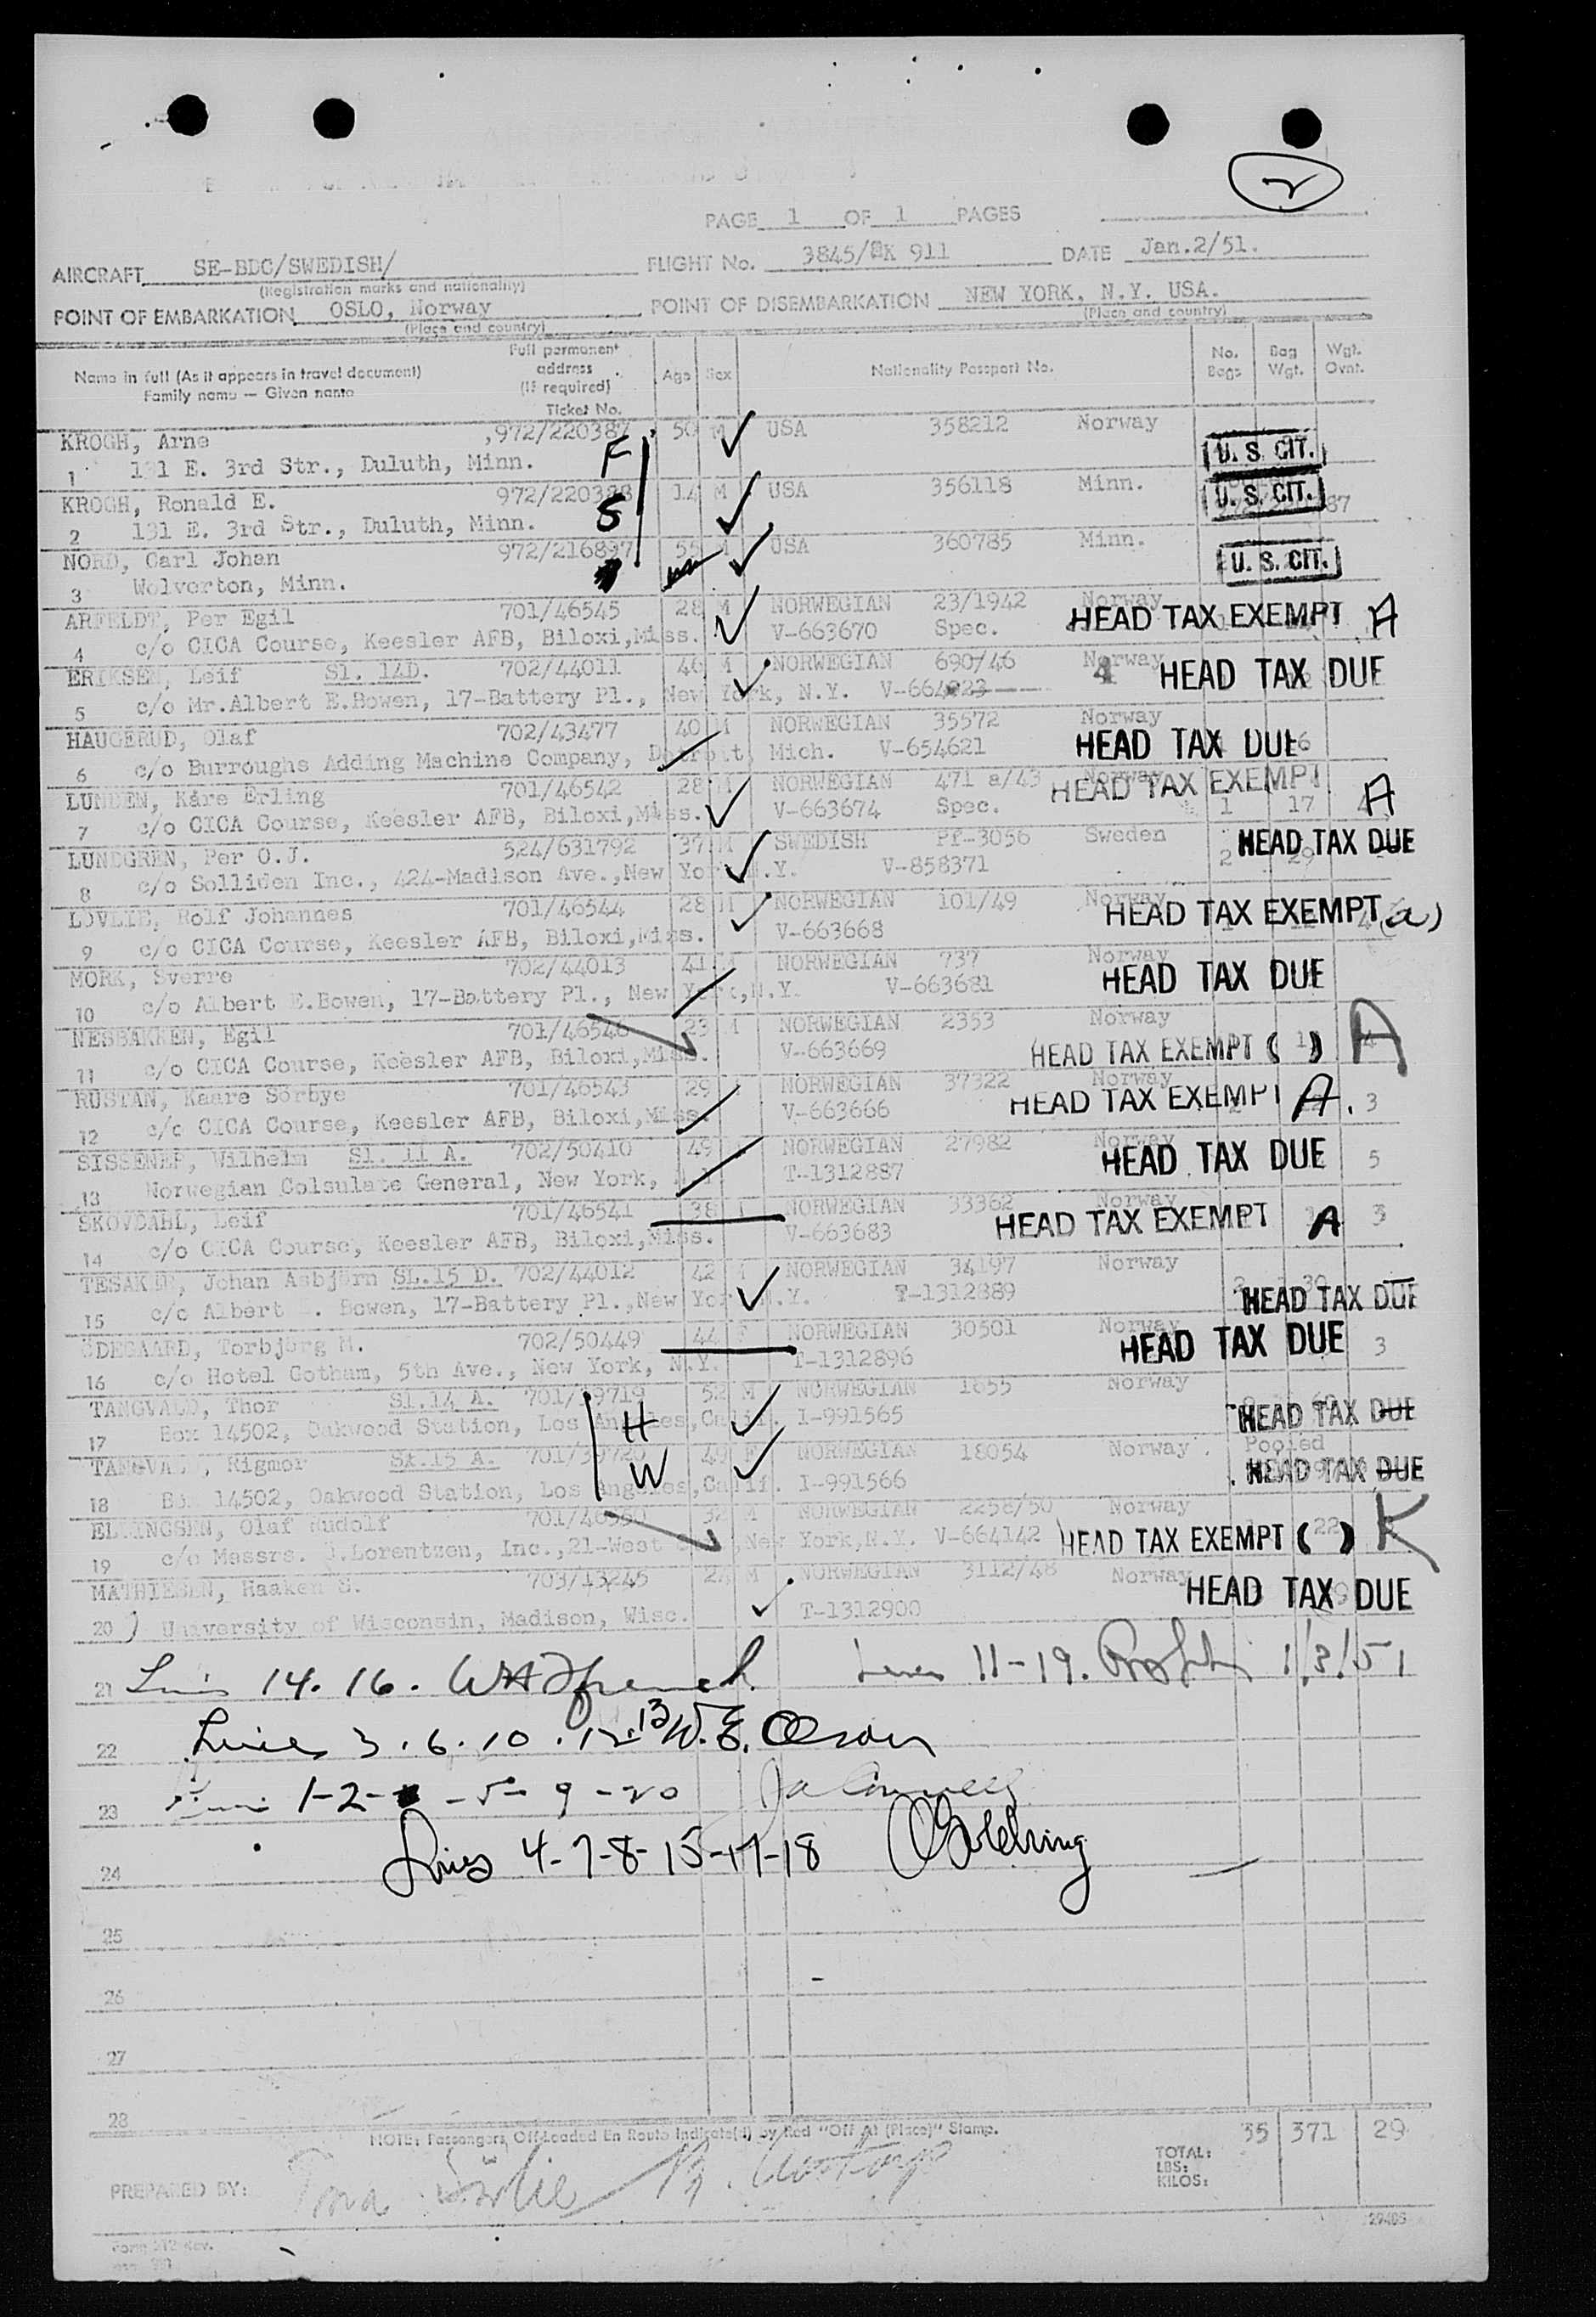 2
PAGE 1 OF 1 PAGES
AIRCRAFT SE-BDC/SWEDISH/ FLIGHT No. 3845/SK 911 DATE Jan.2/51.
(Registration marks and nationality)
POINT OF EMBARKATION OSLO, Norway POINT OF DISEMBARKATION NEW YORK, N.Y. USA.
(Place and country) (Place and country)
Name in full (As it appears in travel document) Family name — Given name Full permanent address (If required) Ticket No. Age Sex Nationality Passport No. No. Bags Bag Wgt. Wgt. Ovnt.
KROGH, Arne 972/220387 50 M USA 358212 Norway
1 131 E. 3rd Str., Duluth, Minn. F U. S. CIT.
KROGH, Ronald E. 972/220388 14 M USA 356118 Minn.
2 131 E. 3rd Str., Duluth, Minn. S U. S. CIT.
NORD, Carl Johan 972/216897 55 M USA 360785 Minn.
3 Wolverton, Minn. U. S. CIT.
ARFELDT, Per Egil 701/46545 28 M NORWEGIAN 23/1942 Norway
4 c/o CICA Course, Keesler AFB, Biloxi,Miss. V-663670 Spec. HEAD TAX EXEMPT A
ERIKSEN, Leif Sl. 14D. 702/44011 46 M NORWEGIAN 690/46 Norway
5 c/o Mr.Albert E.Bowen, 17-Battery Pl., New York, N.Y. HEAD TAX DUE
HAUGERUD, Olaf 702/43477 40 M NORWEGIAN 35572 Norway
6 c/o Burroughs Adding Machine Company, Detroit, Mich. V-654621 HEAD TAX DUE
LUNDEN, Kåre Erling 701/46542 28 M NORWEGIAN 471 a/43 Norway
7 c/o CICA Course, Keesler AFB, Biloxi,Miss. V-663674 Spec. HEAD TAX EXEMPT 1 17 A
LUNDGREN, Per O.J. 524/631792 37 M SWEDISH Pf-3056 Sweden
8 c/o Solliden Inc., 424-Madison Ave.,New York N.Y. V-858371 2 29 HEAD TAX DUE
LOVLIE, Rolf Johannes 701/46544 28 M NORWEGIAN 101/49 Norway
9 c/o CICA Course, Keesler AFB, Biloxi,Miss. V-663668 HEAD TAX EXEMPT (a)
MORK, Sverre 702/44013 41 M NORWEGIAN 737 Norway
10 c/o Albert E.Bowen, 17-Battery Pl., New York,N.Y. V-663681 HEAD TAX DUE
NESBAKKEN, Egil 701/46546 23 M NORWEGIAN 2353 Norway
11 c/o CICA Course, Keesler AFB, Biloxi,Miss. V-663669 HEAD TAX EXEMPT ( ) A
RUSTAN, Kaare Sörbye 701/46543 29 NORWEGIAN 37322 Norway
12 c/o CICA Course, Keesler AFB, Biloxi,Miss. V-663666 HEAD TAX EXEMPT A. 3
SISSENER, Wilhelm Sl. 11 A. 702/50410 49 NORWEGIAN 27982 Norway
13 Norwegian Colsulate General, New York, N.Y. T-1312887 HEAD TAX DUE 5
SKOVDAHL, Leif 701/46541 38 NORWEGIAN 33362 Norway
14 c/o CICA Course, Keesler AFB, Biloxi,Miss. V-663683 HEAD TAX EXEMPT A 3
TESAKER, Johan Asbjörn SL.15 D. 702/44012 42 M NORWEGIAN 34197 Norway
15 c/o Albert E. Bowen, 17-Battery Pl.,New York N.Y. T-1312889 HEAD TAX DUE
ÖDEGAARD, Torbjörg M. 702/50449 44 F NORWEGIAN 30501 Norway
16 c/o Hotel Gotham, 5th Ave., New York, N.Y. T-1312896 HEAD TAX DUE 3
TANGVALD, Thor Sl.14 A. 701/39719 52 M NORWEGIAN 1855 Norway
17 Box 14502, Oakwood Station, Los Angeles,Calif. H I-991565 HEAD TAX DUE
TANGVALD, Rigmor Sl.15 A. 701/39720 49 F NORWEGIAN 18054 Norway Pooled
18 Box 14502, Oakwood Station, Los Angeles,Calif. W I-991566 HEAD TAX DUE
ELLINGSEN, Olaf Rudolf 32 M NORWEGIAN 2258/50 Norway
19 c/o Messrs. Lorentzen, Inc.,21-West New York,N.Y. V-664142 HEAD TAX EXEMPT ( ) K
MATHIESEN, Haaken S. 703/13245 27 M NORWEGIAN 3112/48 Norway
20 University of Wisconsin, Madison, Wisc. T-1312900 HEAD TAX DUE
21 Lines 14. 16. Lines 11-19. 1/3/51
22 Lines 3. 6. 10. 12. 13 W. E. Olson
23 Lines 1-2- -5- 9 -20
24 Lines 4-7-8-15-17-18
25
26
27
28
NOTE: Passengers Off-Loaded En Route Indicate(d) by Red "Off At (Place)" Stamp. 35 371 29
TOTAL:
LBS:
KILOS:
PREPARED BY:
29405
Form 212 Rev.